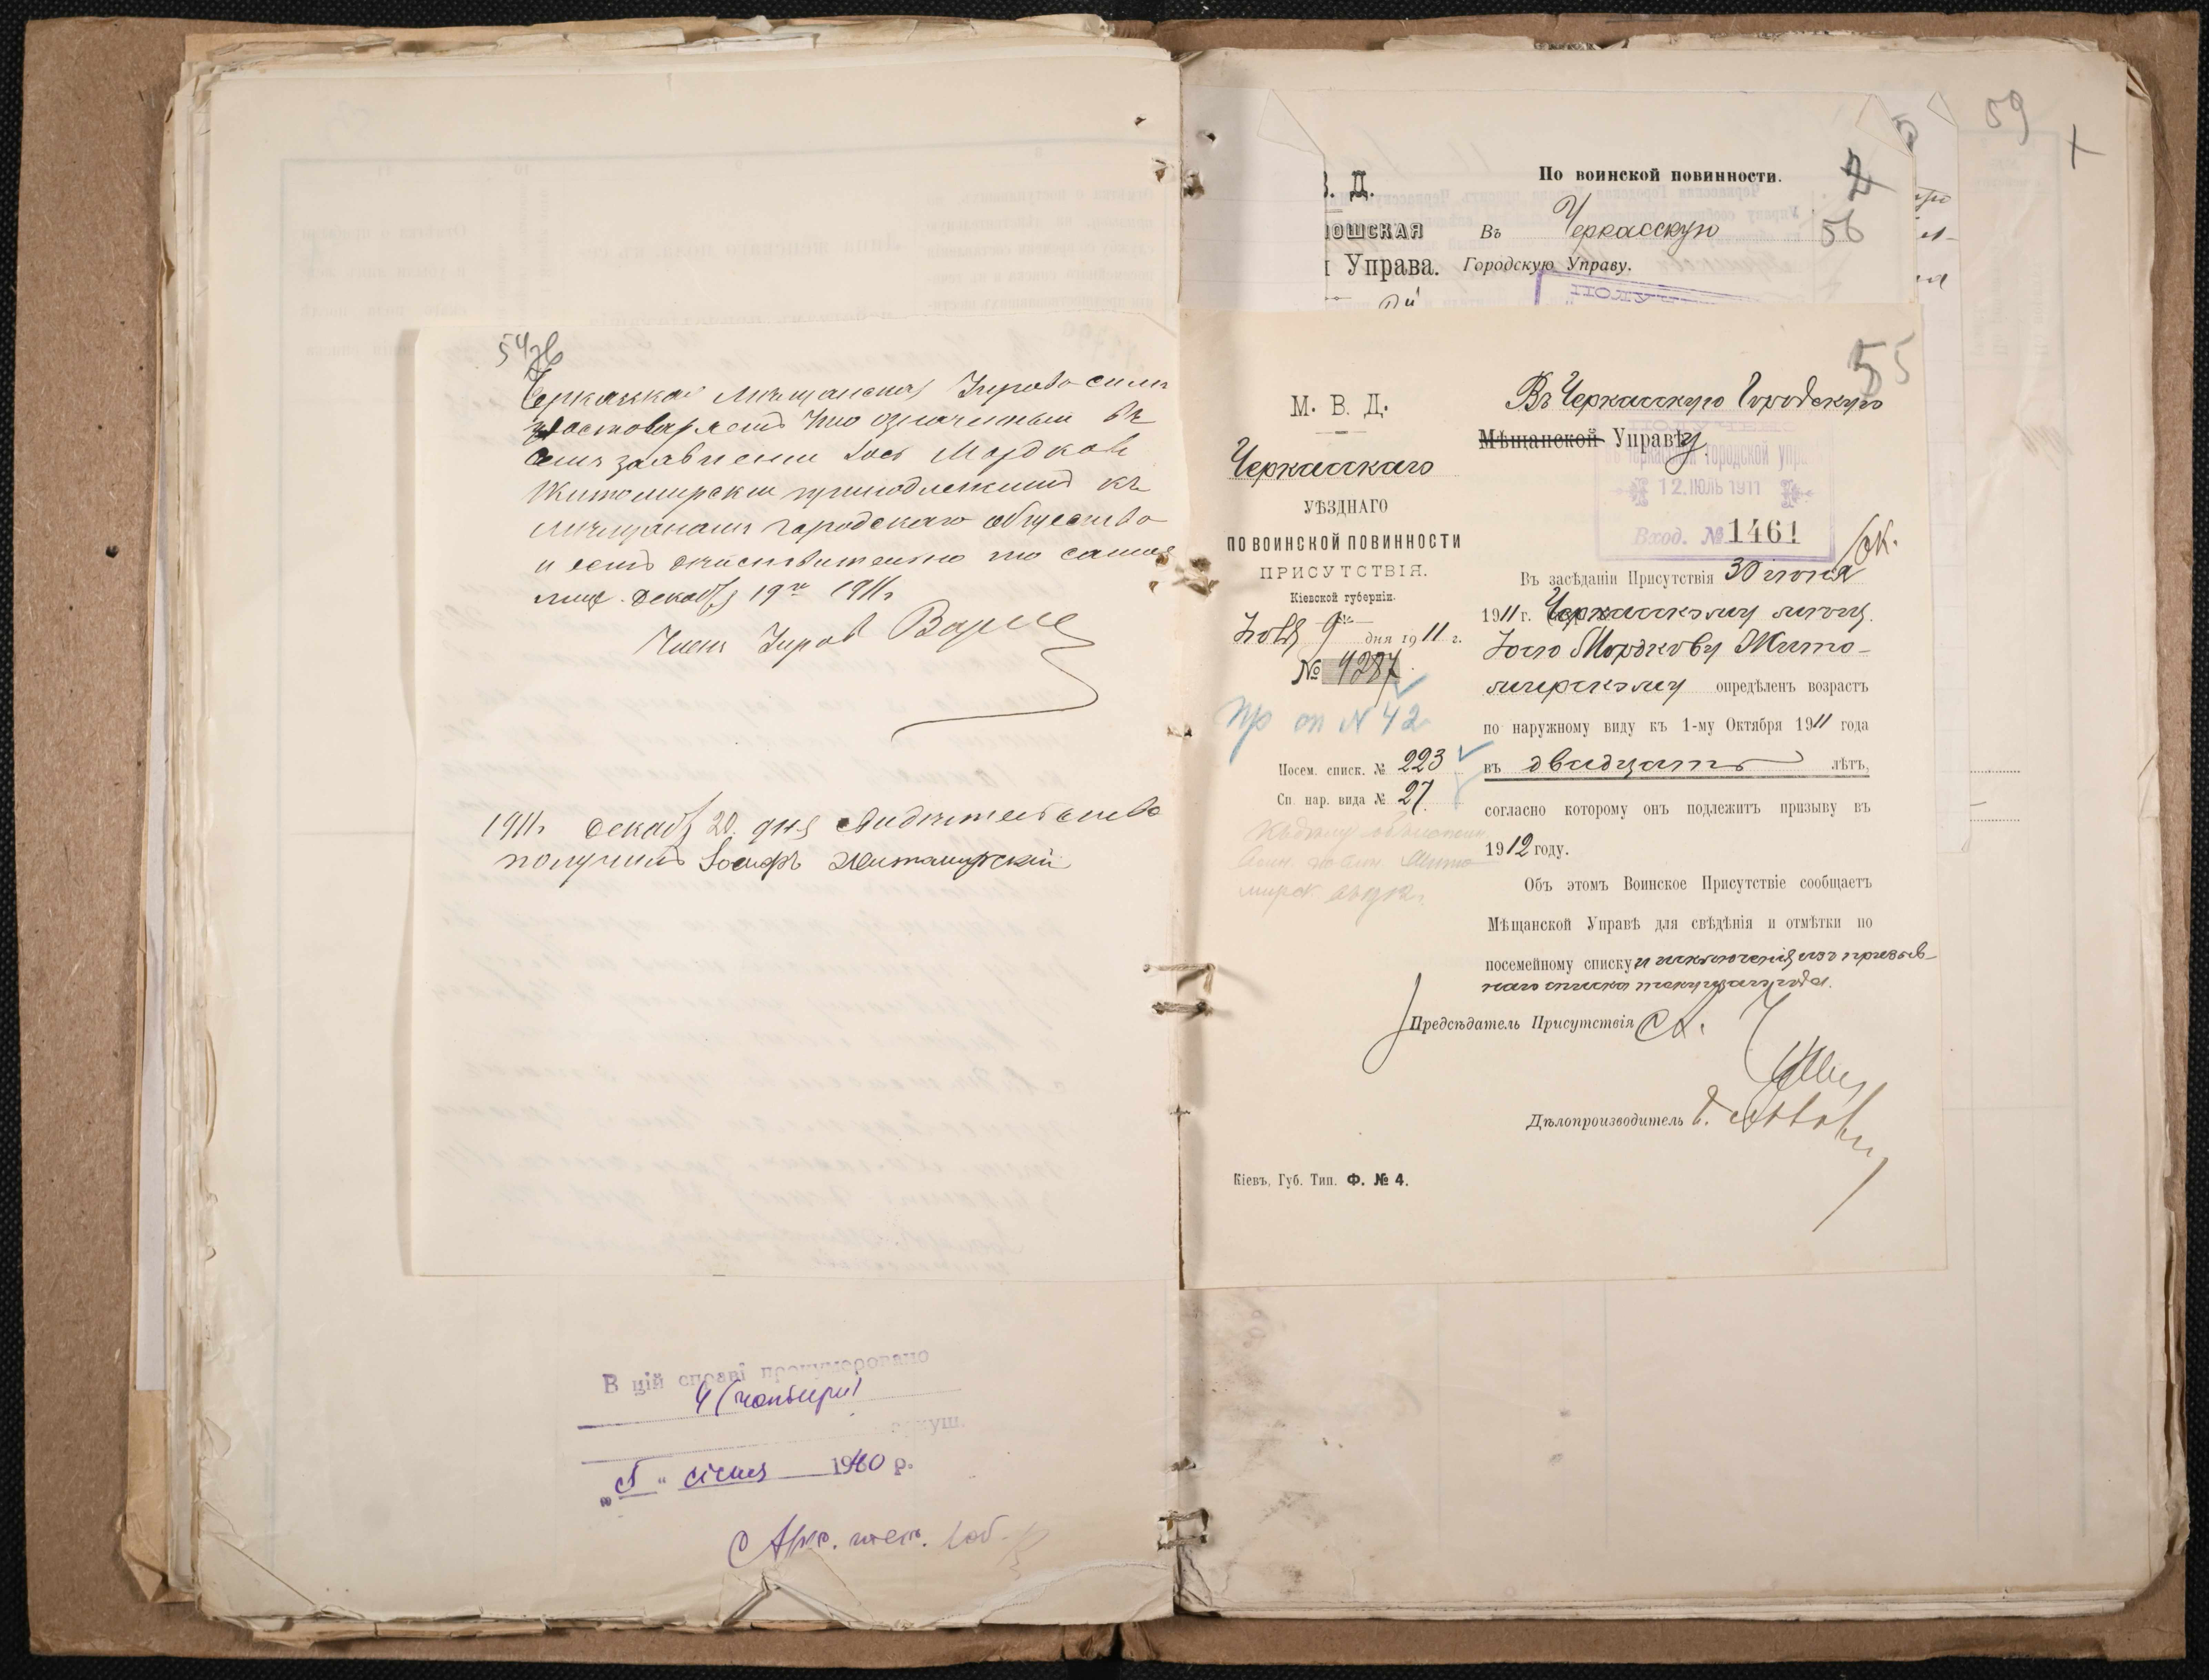 54 об
Черкасская Мещанская Управа симъ
удостоверяетъ что означенный въ
семъ заявлении Іось Мордков
Житомирский принадлежитъ къ
мещанамъ городскаго общества
и есть действительно то самое
лицо. Декабря 19 1911 г
Членъ Управ
1911 г Декабря 20 дня Свидетельство
получилъ Іосифъ Житомирскій
В цій справі пронумеровано
4 (чотири)
аркуш.
" січня 1940 р.
59
По воинской повинности.
В. Д.
56
ОШСКАЯ
Въ Черкасскую
Управа.
Городскую Управу.
55
М. В. Д.
Черкасскаго
УѢЗДНАГО
ПО ВОИНСКОЙ ПОВИННОСТИ
ПРИСУТСТВІЯ.
Кіевской губерніи.
Іюля 9 дня 1911 г.
№ 4287
пр оп N 42
Посем. списк. № 223
Сп. нар. вида № 27.
Въ Черкасскую Городскую
Мѣщанской Управѣу
ПОЛУЧЕНО
въ Черкасской городской упр
12. ІЮЛЬ 1911
Вход. № 1461
Въ засѣданіи Присутствія 30 іюня
1911 г. Черкасскому мѣщ.
Іосю Мордкову Жито-
мирскому опредѣленъ возрастъ
по наружному виду къ 1-му Октября 1911 года
въ двадцать лѣтъ,
согласно которому онъ подлежитъ призыву въ
1912 году.
Объ этомъ Воинское Присутствіе сообщаетъ
Мѣщанской Управѣ для свѣдѣнія и отмѣтки по
посемейному списку и исключенія изъ призыв-
наго списка текущаго года.
Предсѣдатель Присутствія
Дѣлопроизводитель
Кіевъ, Губ. Тип. Ф. № 4.